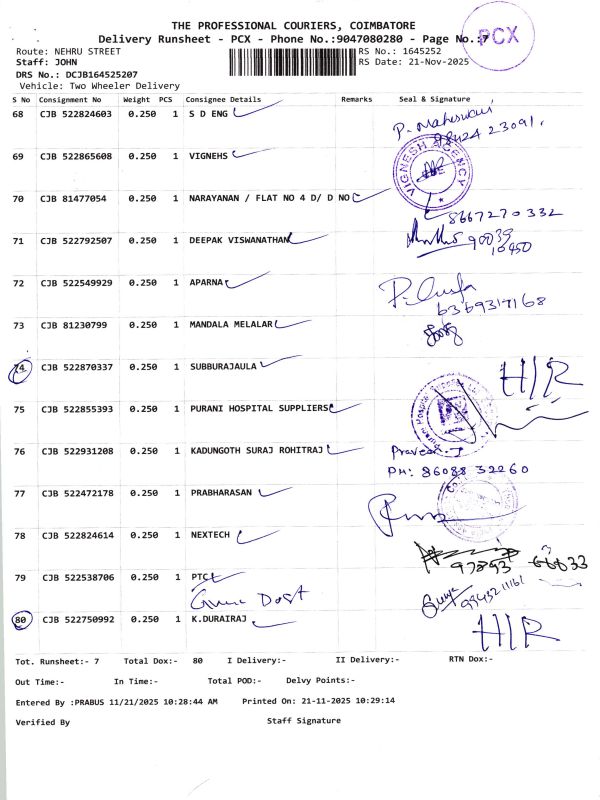 THE PROFESSIONAL COURIERS, COIMBATORE
Delivery Runsheet - PCX - Phone No.:9047080280 - Page No.:7
PCX
Route: NEHRU STREET
RS No.: 1645252
Staff: JOHN
RS Date: 21-Nov-2025
DRS No.: DCJB164525207
Vehicle: Two Wheeler Delivery
S No Consignment No Weight PCS Consignee Details Remarks Seal & Signature
68 CJB 522824603 0.250 1 S D ENG
P. Maheswari
98424 23091.
69 CJB 522865608 0.250 1 VIGNEHS
VIGNESH AGENCY
70 CJB 81477054 0.250 1 NARAYANAN / FLAT NO 4 D/ D NO
8667270332
71 CJB 522792507 0.250 1 DEEPAK VISWANATHAN
90039
10450
72 CJB 522549929 0.250 1 APARNA
6369317168
73 CJB 81230799 0.250 1 MANDALA MELALAR
74 CJB 522870337 0.250 1 SUBBURAJAULA
H/R
75 CJB 522855393 0.250 1 PURANI HOSPITAL SUPPLIERS
76 CJB 522931208 0.250 1 KADUNGOTH SURAJ ROHITRAJ
Praveen. J
PH: 86088 32260
77 CJB 522472178 0.250 1 PRABHARASAN
78 CJB 522824614 0.250 1 NEXTECH
97893 66633
79 CJB 522538706 0.250 1 PTC
Dost
80 CJB 522750992 0.250 1 K.DURAIRAJ
H/R
Tot. Runsheet:- 7 Total Dox:- 80 I Delivery:- II Delivery:- RTN Dox:-
Out Time:- In Time:- Total POD:- Delvy Points:-
Entered By :PRABUS 11/21/2025 10:28:44 AM Printed On: 21-11-2025 10:29:14
Verified By Staff Signature